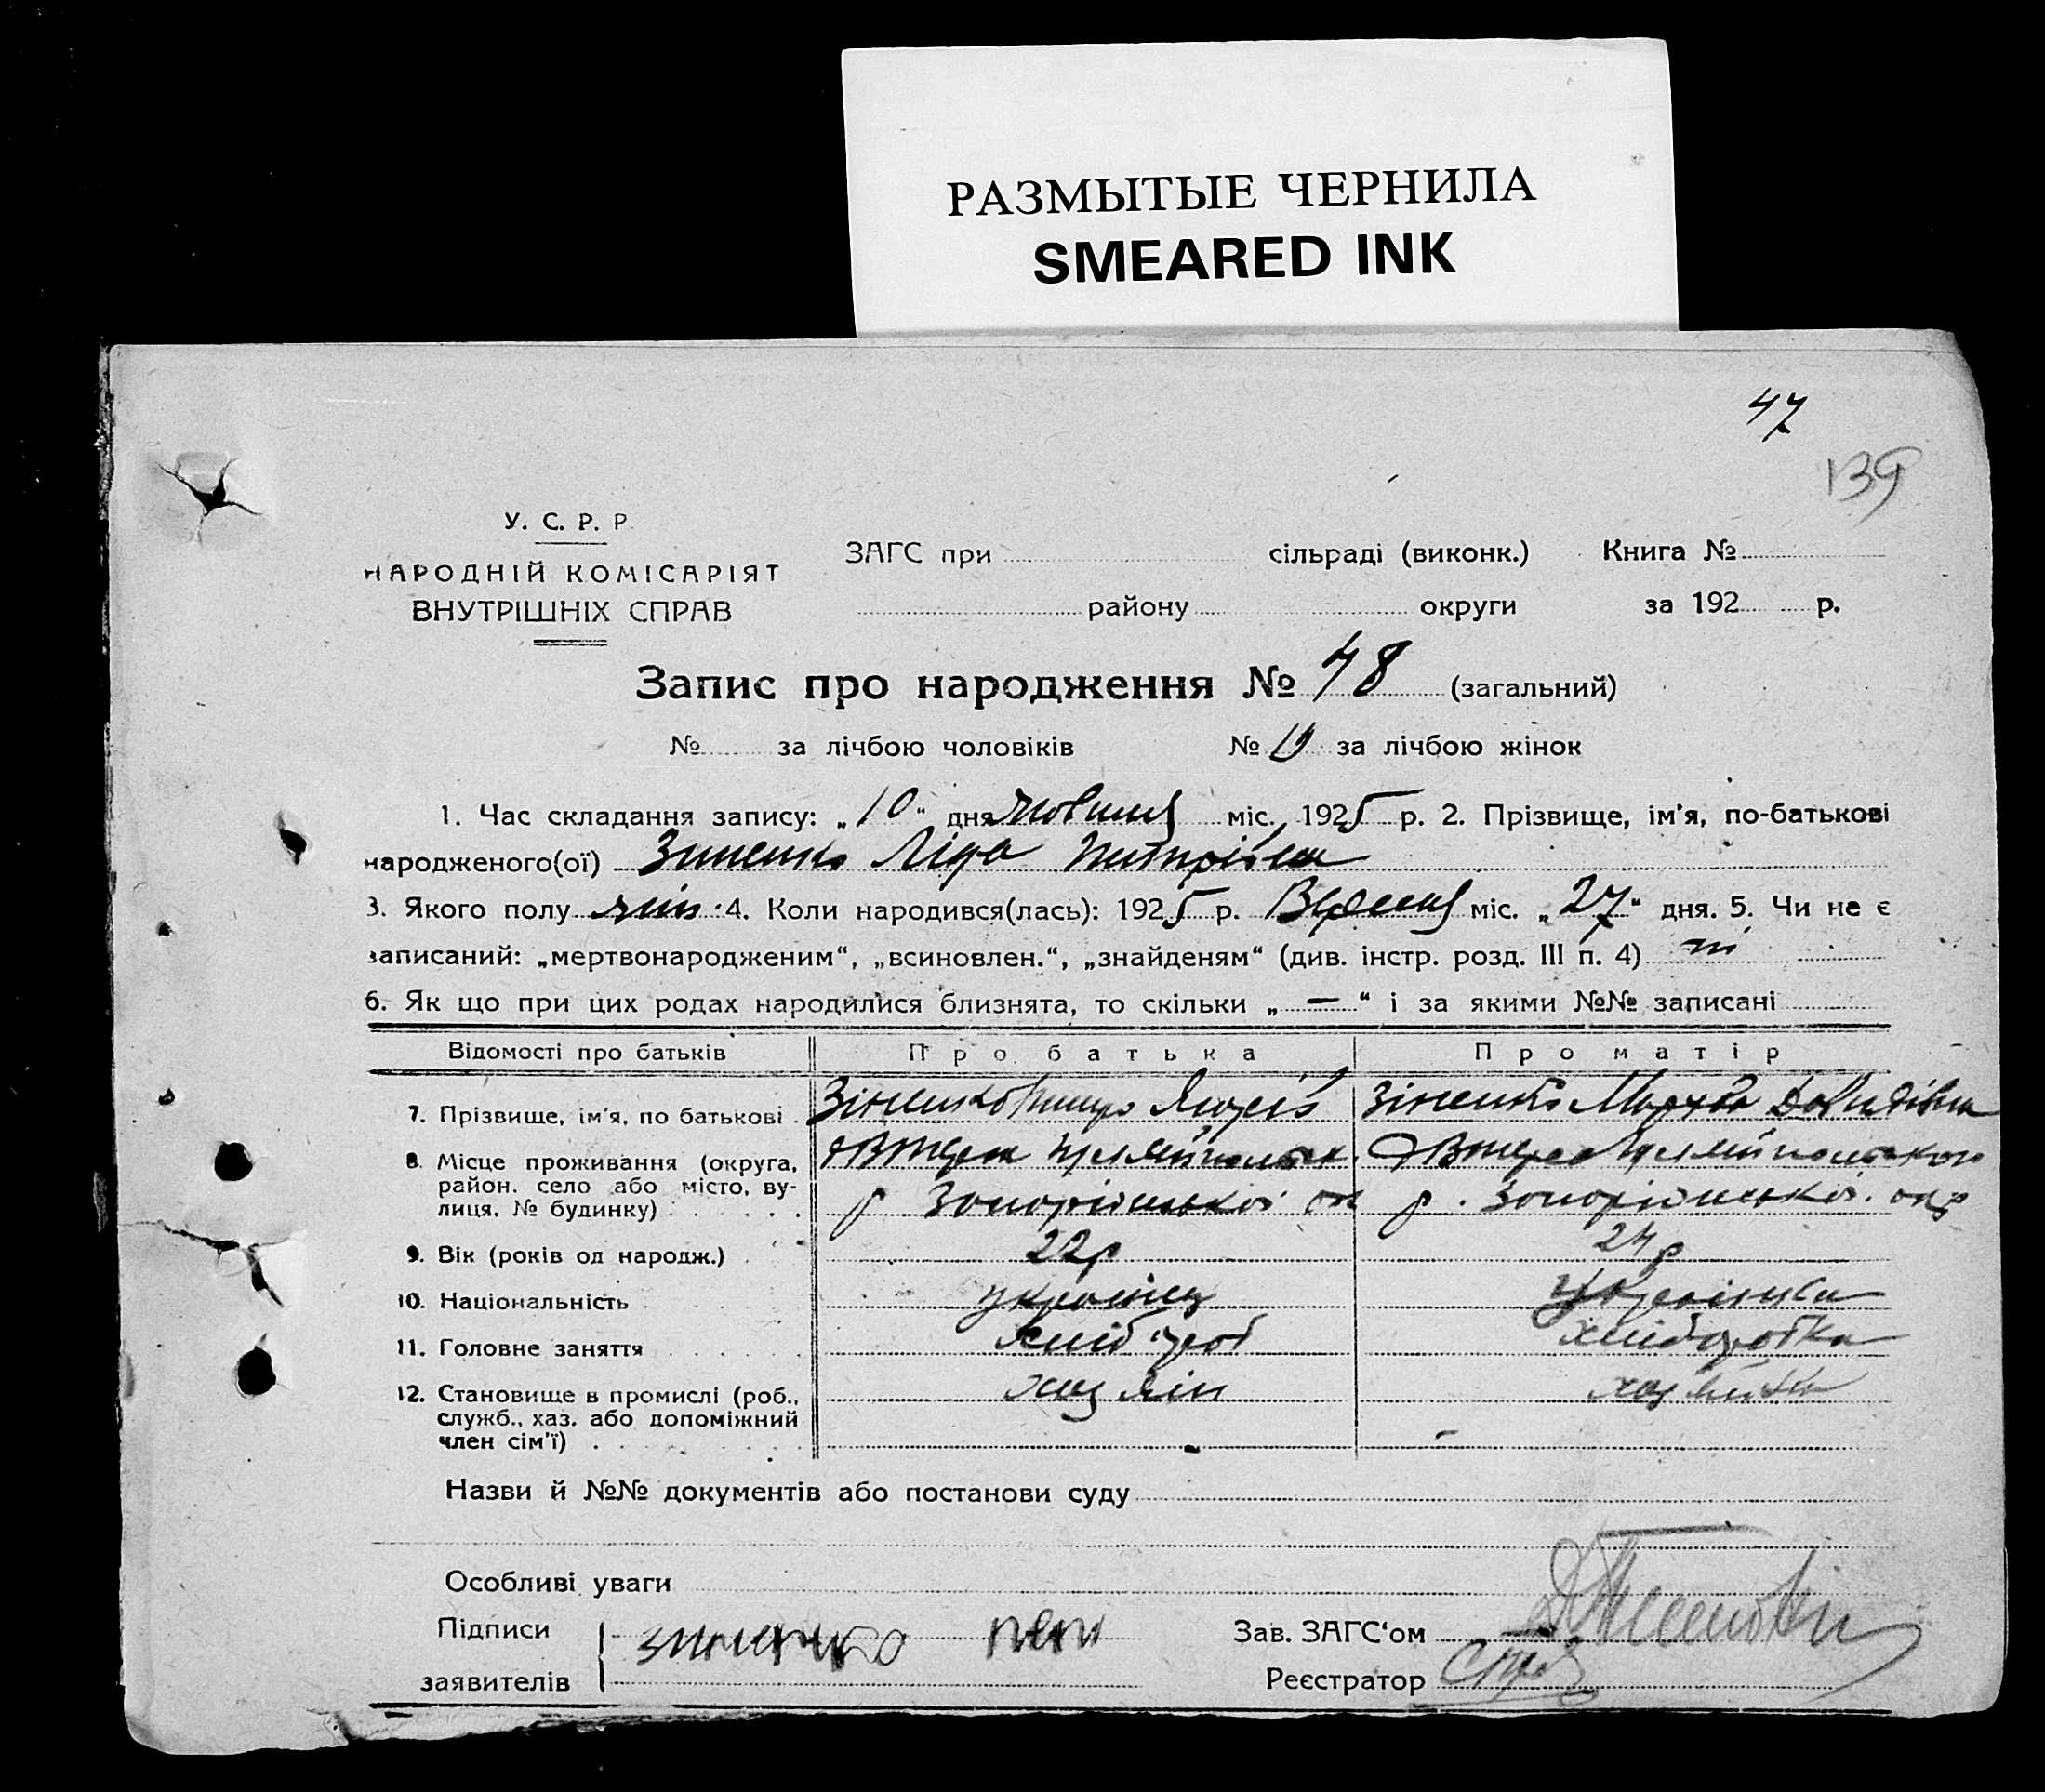 РАЗМЫТЫЕ ЧЕРНИЛА
SMEARED INK
47
139
У. С. Р. Р.
НАРОДНІЙ КОМІСАРІЯТ
ВНУТРІШНІХ СПРАВ
ЗАГС при сільраді (виконк.) Книга №
району округи за 192 р.
Запис про народження № 48 (загальний)
№ за лічбою чоловіків № за лічбою жінок
1. Час складання запису: „10“ дня міс. 1925 р. 2. Прізвище, ім'я, по-батькові
народженого(ої) Зиненко Ліда
3. Якого полу жін 4. Коли народився(лась): 1925 р. міс. „27“ дня. 5. Чи не є
записаний: „мертвонародженим“, „всиновлен.“, „знайденям“ (див. інстр. розд. III п. 4) ні
6. Як що при цих родах народилися близнята, то скільки „—“ і за якими №№ записані
Відомості про батьків Про батька Про матір
7. Прізвище, ім'я, по батькові Зіненко Зіненко Марфа Давидівна
8. Місце проживання (округа,
район, село або місто, ву-
лиця, № будинку)
р Запоріжської ок р. Запоріжської окр
9. Вік (років од народж.) 22р 24р
10. Національність українец Українка
11. Головне заняття хлібороб хліборобка
12. Становище в промислі (роб., хазяін хазяйка
служб., хаз. або допоміжний
член сім'ї)
Назви й №№ документів або постанови суду
Особливі уваги
Підписи зиненко Зав. ЗАГС‘ом
заявителів Реєстратор